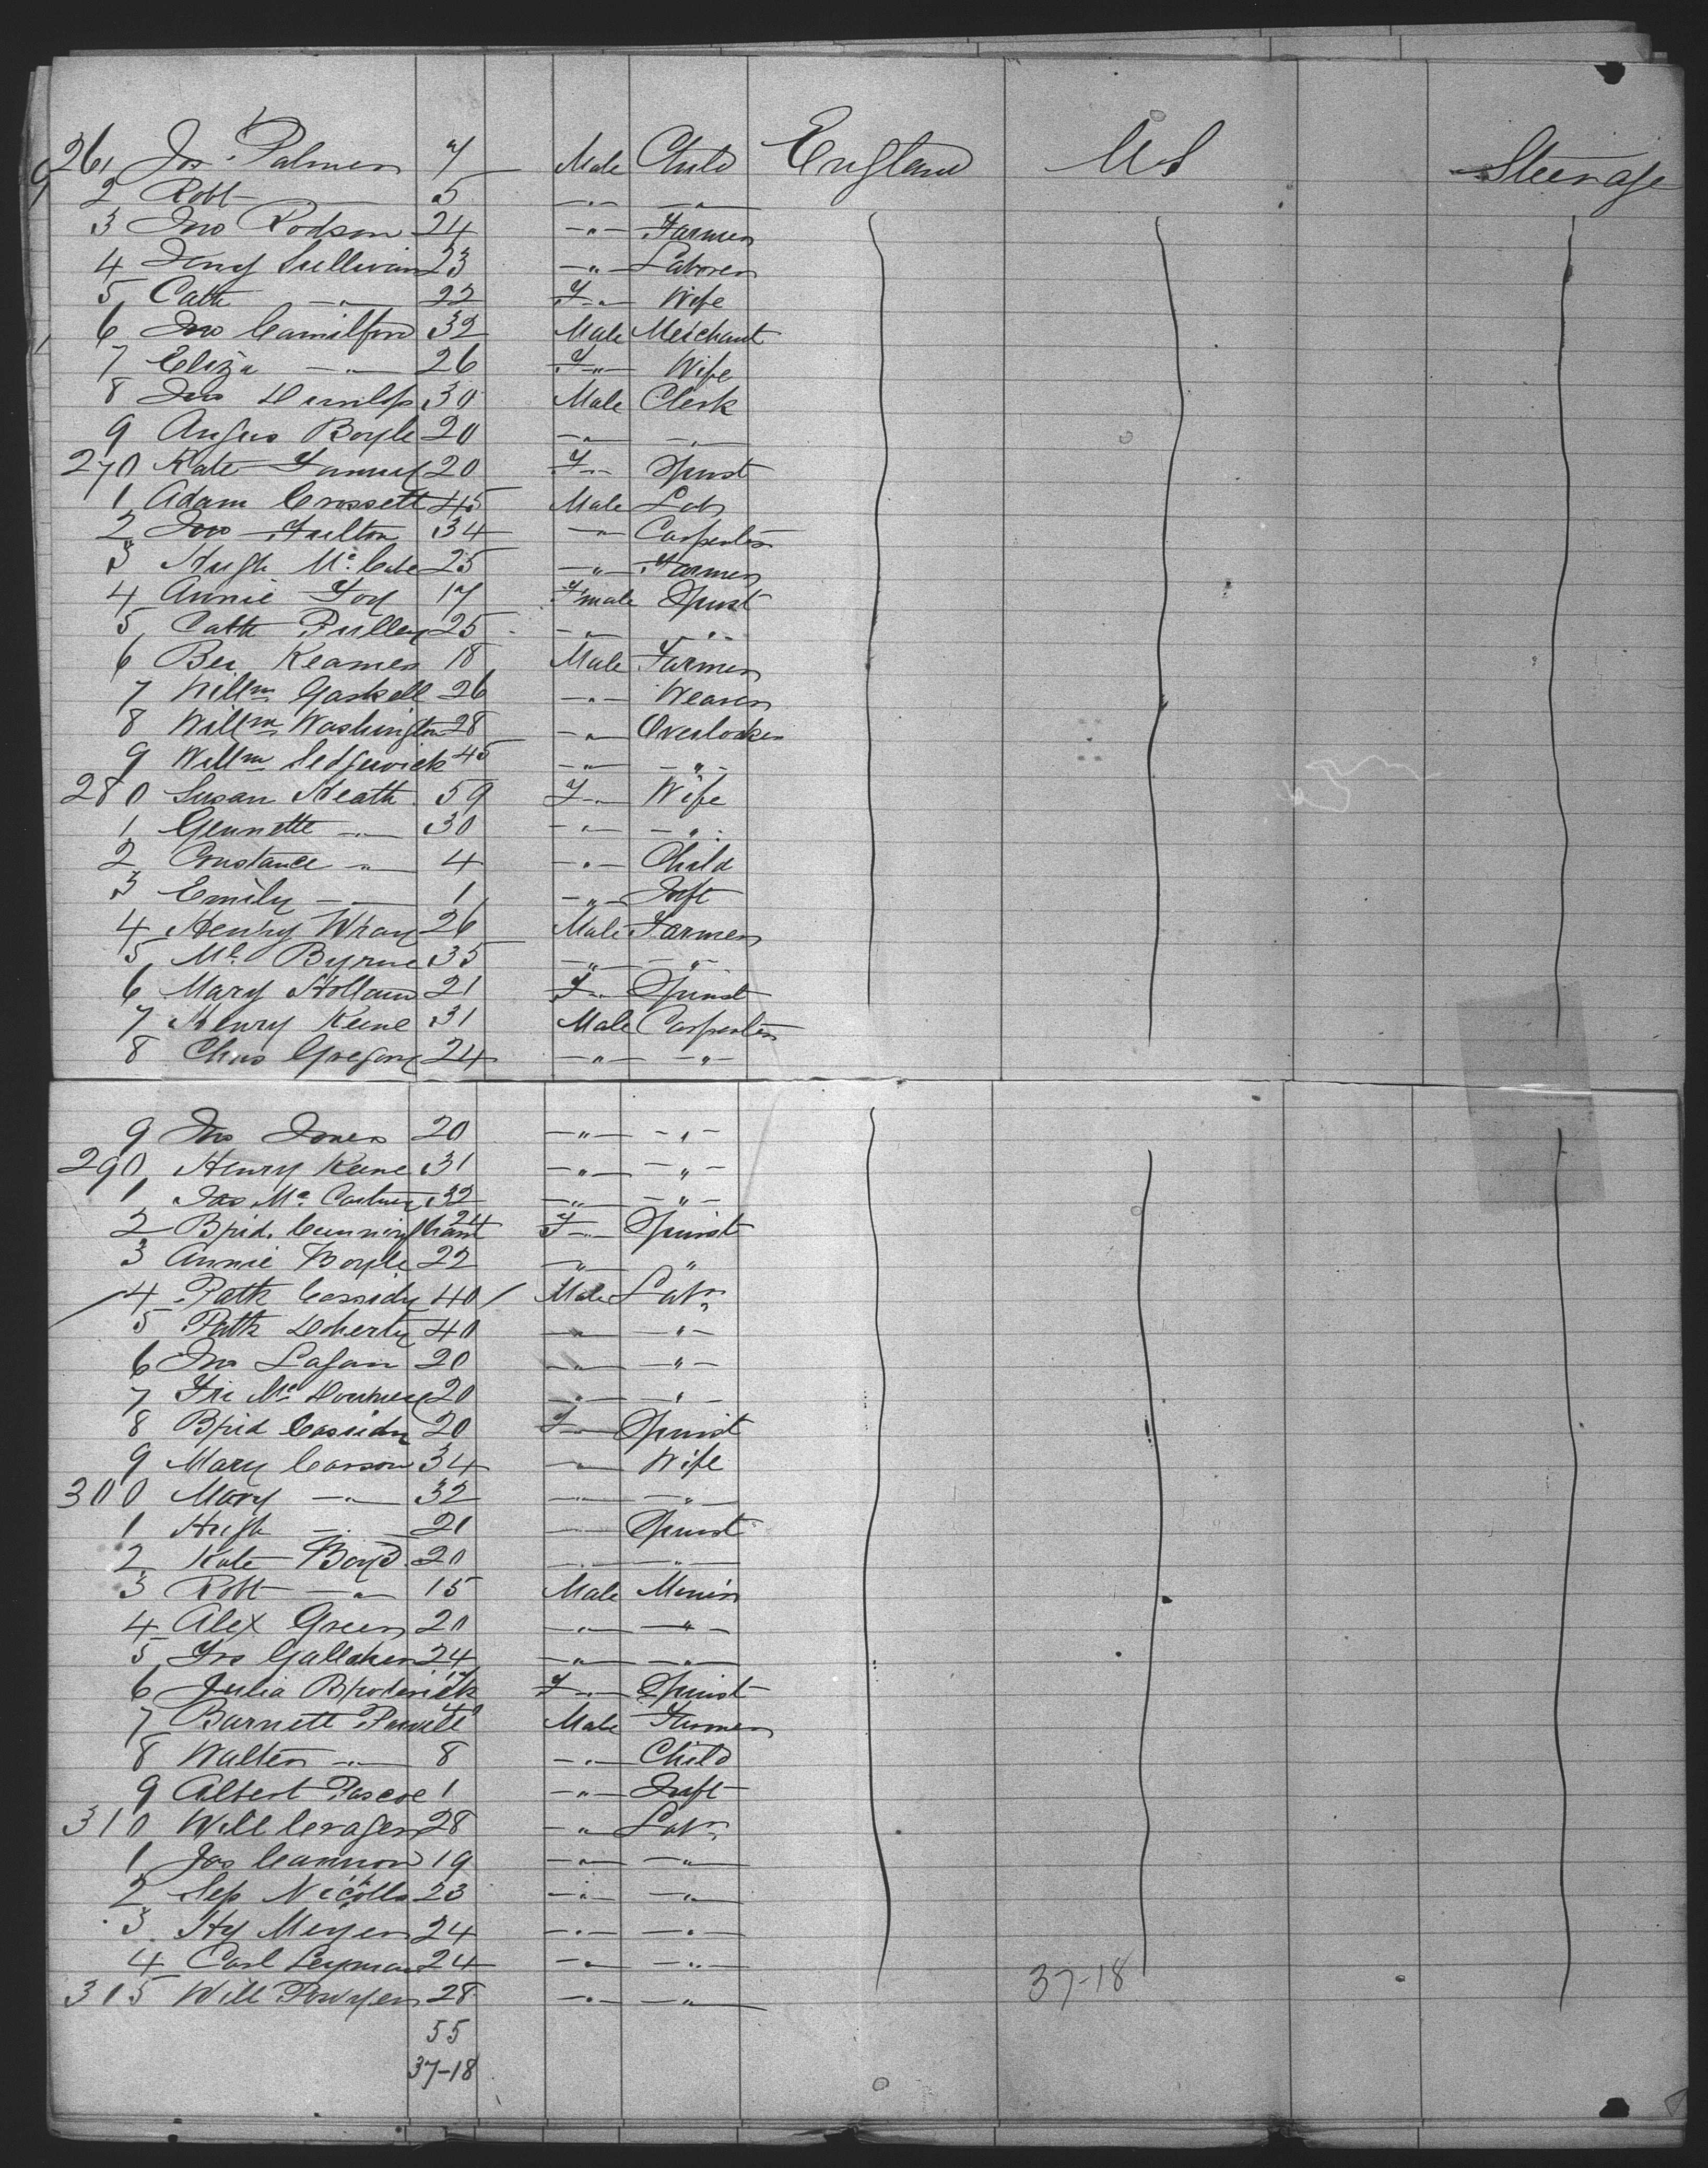 261 Jos Palmer 7 Male Child England U S Steerage
2 Robt 5 -"- -"-
3 Jno Rodson 24 -"- Farmer
4 Jerry Sullivan 23 -"- Laborer
5 Cath -"- 22 F-"- Wife
6 Jno Camilford 32 Male Merchant
7 Eliza -"- 26 F-"- Wife
8 Jno Dunlop 30 Male Clerk
9 Angus Boyle 20 -"- -"-
270 Kate 20 F-"- Spinst
1 Adam Crossett 45 Male Labr
2 Jno Fulton 34 -"- Carpenter
3 Hugh McCabe 25 -"- Farmer
4 Annie Foy 17 Fmale Spinst
5 Cath Pulley 25 -"- -"-
6 Ber Keamer 18 Male Farmer
7 Willm Gaskell 26 -"- Weaver
8 Willm Washington 28 -"- Overlooker
9 Willm Sedgewick 45 -"- -"-
280 Susan Heath 59 F-"- Wife
1 Gennette -"- 30 -"- -"-
2 Constance -"- 4 -"- Child
3 Emily -"- 1 -"- Inft
4 Henry Wray 26 Male Farmer
5 Ml Byrne 35 -"- -"-
6 Mary Holland 21 F-"- Spinst
7 Henry Keene 31 Male Carpenter
8 Chas Gregory 24 -"- -"-
9 Jno Jones 20 -"- -"-
290 Henry Keene 31 -"- -"-
1 Jas Mc Cartney 32 -"- -"-
2 Brid. Cunningham 24 F-"- Spinst
3 Annie Boyle 22 -"- "
4 Patk Cassidy 40 Male Labr
5 Patk Doherty 40 -"- -"-
6 Jno Lagan 20 -"- -"-
7 Mc 20 -"- -"-
8 Brid Cassidy 20 F-"- Spinst
9 Mary Carson 34 -"- Wife
300 Mary -"- 32 -"- -"-
1 Hugh -"- 21 Spinst
2 Kate Boyd 20 -"- -"-
3 Robt -"- 15 Male Miner
4 Alex Green 20 -"- -"-
5 Gallaher 24 -"- -"-
6 Julia Broderick 17 F-"- Spinst
7 Barnett Male Farmer
8 Walter -"- 8 -"- Child
9 Albert Pascoe 1 -"- Inft
310 Will Crager 28 -"- Labr
1 Jas Cannon 19 -"- -"-
2 Sep Nicolls 23 -"- -"-
3 Hy Meyer 24 -"- -"-
4 Carl Leyman 24 -"- -"-
315 Will Powyer 28 -"- -"- 37-18
55
37-18